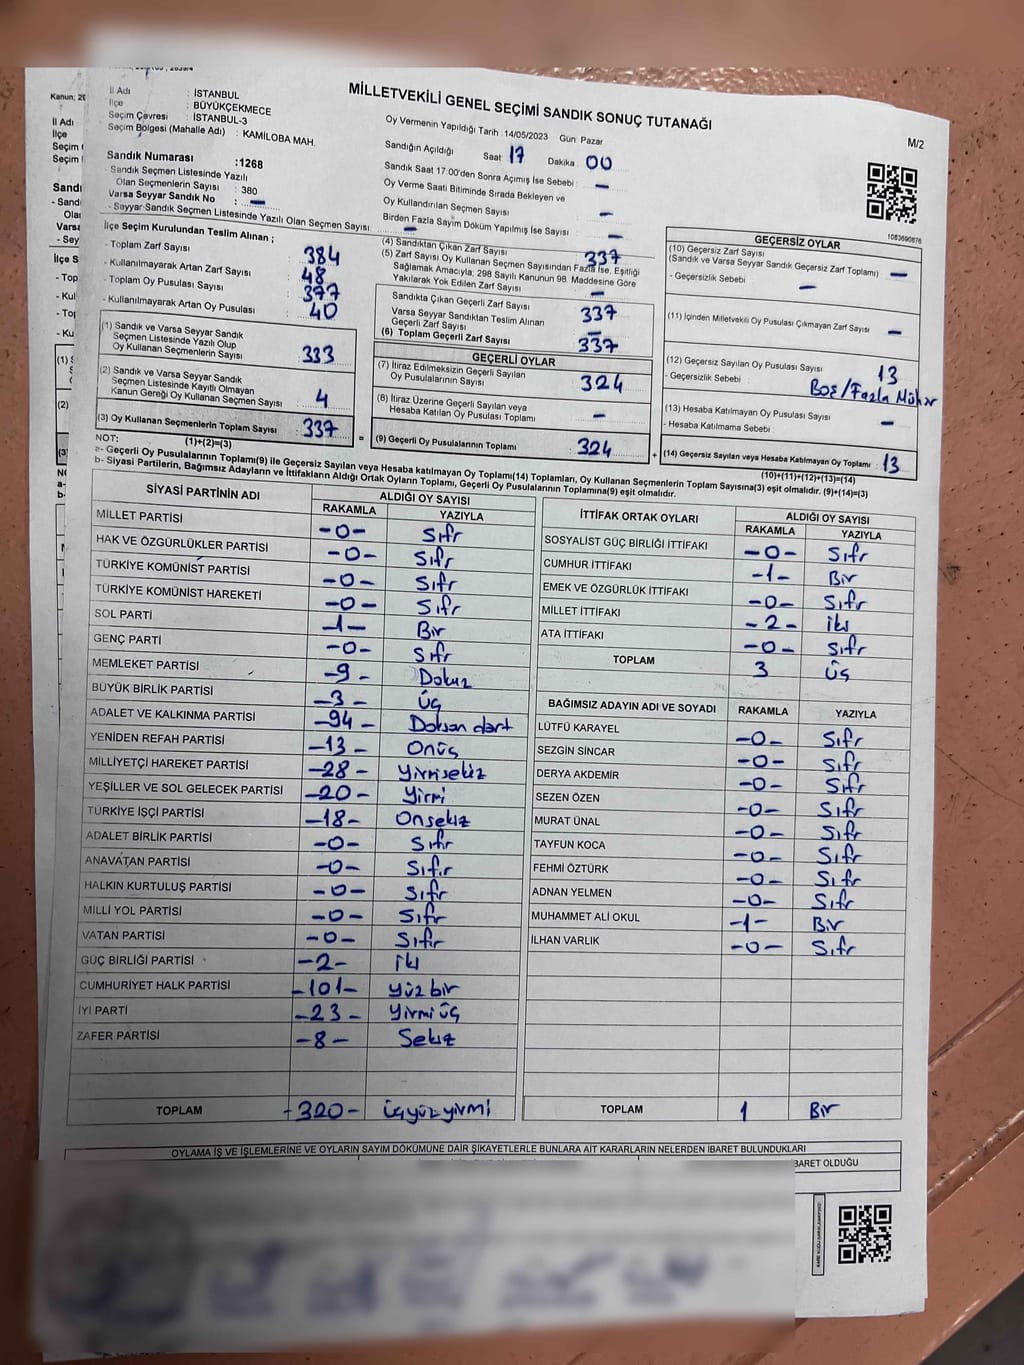 MİLLETVEKİLİ GENEL SEÇİMİ SANDIK SONUÇ TUTANAĞI
M/2
İl Adı : İSTANBUL
İlçe : BÜYÜKÇEKMECE
Seçim Çevresi : İSTANBUL-3
Seçim Bölgesi (Mahalle Adı) : KAMİLOBA MAH.
Sandık Numarası :1268
- Sandık Seçmen Listesinde Yazılı
Olan Seçmenlerin Sayısı : 380
Varsa Seyyar Sandık No : —
- Seyyar Sandık Seçmen Listesinde Yazılı Olan Seçmen Sayısı : —
Oy Vermenin Yapıldığı Tarih : 14/05/2023 Gün: Pazar
Sandığın Açıldığı Saat: 17 Dakika : 00
Sandık Saat 17.00'den Sonra Açılmış İse Sebebi : —
Oy Verme Saati Bitiminde Sırada Bekleyen ve
Oy Kullandırılan Seçmen Sayısı : —
Birden Fazla Sayım Döküm Yapılmış İse Sayısı : —
1083690876
İlçe Seçim Kurulundan Teslim Alınan ;
- Toplam Zarf Sayısı : 384
- Kullanılmayarak Artan Zarf Sayısı : 48
- Toplam Oy Pusulası Sayısı : 377
- Kullanılmayarak Artan Oy Pusulası : 40
(1) Sandık ve Varsa Seyyar Sandık
Seçmen Listesinde Yazılı Olup
Oy Kullanan Seçmenlerin Sayısı : 333
(2) Sandık ve Varsa Seyyar Sandık
Seçmen Listesinde Kayıtlı Olmayan
Kanun Gereği Oy Kullanan Seçmen Sayısı : 4
(3) Oy Kullanan Seçmenlerin Toplam Sayısı : 337
(1)+(2)=(3)
(4) Sandıktan Çıkan Zarf Sayısı : 337
(5) Zarf Sayısı Oy Kullanan Seçmen Sayısından Fazla İse, Eşitliği
Sağlamak Amacıyla, 298 Sayılı Kanunun 98. Maddesine Göre
Yakılarak Yok Edilen Zarf Sayısı : —
Sandıkta Çıkan Geçerli Zarf Sayısı : 337
Varsa Seyyar Sandıktan Teslim Alınan
Geçerli Zarf Sayısı : —
(6) Toplam Geçerli Zarf Sayısı : 337
GEÇERLİ OYLAR
(7) İtiraz Edilmeksizin Geçerli Sayılan
Oy Pusulalarının Sayısı : 324
(8) İtiraz Üzerine Geçerli Sayılan veya
Hesaba Katılan Oy Pusulası Toplamı : —
(9) Geçerli Oy Pusulalarının Toplamı : 324
GEÇERSİZ OYLAR
(10) Geçersiz Zarf Sayısı
(Sandık ve Varsa Seyyar Sandık Geçersiz Zarf Toplamı) : —
- Geçersizlik Sebebi : —
(11) İçinden Milletvekili Oy Pusulası Çıkmayan Zarf Sayısı : —
(12) Geçersiz Sayılan Oy Pusulası Sayısı : 13
- Geçersizlik Sebebi : Boş/Fazla Mühür
(13) Hesaba Katılmayan Oy Pusulası Sayısı : —
- Hesaba Katılmama Sebebi :
(14) Geçersiz Sayılan veya Hesaba Katılmayan Oy Toplamı : 13
(10)+(11)+(12)+(13)=(14)
NOT:
a- Geçerli Oy Pusulalarının Toplamı(9) ile Geçersiz Sayılan veya Hesaba katılmayan Oy Toplamı(14) Toplamları, Oy Kullanan Seçmenlerin Toplam Sayısına(3) eşit olmalıdır. (9)+(14)=(3)
b- Siyasi Partilerin, Bağımsız Adayların ve İttifakların Aldığı Ortak Oyların Toplamı, Geçerli Oy Pusulalarının Toplamına(9) eşit olmalıdır.
SİYASİ PARTİNİN ADI ALDIĞI OY SAYISI
RAKAMLA YAZIYLA
MİLLET PARTİSİ -0- Sıfır
HAK VE ÖZGÜRLÜKLER PARTİSİ -0- Sıfır
TÜRKİYE KOMÜNİST PARTİSİ -0- Sıfır
TÜRKİYE KOMÜNİST HAREKETİ -0- Sıfır
SOL PARTİ -1- Bir
GENÇ PARTİ -0- Sıfır
MEMLEKET PARTİSİ -9- Dokuz
BÜYÜK BİRLİK PARTİSİ -3- Üç
ADALET VE KALKINMA PARTİSİ -94- Doksan dört
YENİDEN REFAH PARTİSİ -13- Onüç
MİLLİYETÇİ HAREKET PARTİSİ -28- Yirmisekiz
YEŞİLLER VE SOL GELECEK PARTİSİ -20- Yirmi
TÜRKİYE İŞÇİ PARTİSİ -18- Onsekiz
ADALET BİRLİK PARTİSİ -0- Sıfır
ANAVATAN PARTİSİ -0- Sıfır
HALKIN KURTULUŞ PARTİSİ -0- Sıfır
MİLLİ YOL PARTİSİ -0- Sıfır
VATAN PARTİSİ -0- Sıfır
GÜÇ BİRLİĞİ PARTİSİ -2- iki
CUMHURİYET HALK PARTİSİ -101- Yüz bir
İYİ PARTİ -23- Yirmi üç
ZAFER PARTİSİ -8- Sekiz
TOPLAM -320- Üçyüz yirmi
İTTİFAK ORTAK OYLARI ALDIĞI OY SAYISI
RAKAMLA YAZIYLA
SOSYALİST GÜÇ BİRLİĞİ İTTİFAKI -0- Sıfır
CUMHUR İTTİFAKI -1- Bir
EMEK VE ÖZGÜRLÜK İTTİFAKI -0- Sıfır
MİLLET İTTİFAKI -2- iki
ATA İTTİFAKI -0- Sıfır
TOPLAM 3 Üç
BAĞIMSIZ ADAYIN ADI VE SOYADI RAKAMLA YAZIYLA
LÜTFÜ KARAYEL -0- Sıfır
SEZGİN SİNCAR -0- Sıfır
DERYA AKDEMİR -0- Sıfır
SEZEN ÖZEN -0- Sıfır
MURAT ÜNAL -0- Sıfır
TAYFUN KOCA -0- Sıfır
FEHMİ ÖZTÜRK -0- Sıfır
ADNAN YELMEN -0- Sıfır
MUHAMMET ALİ OKUL -1- Bir
İLHAN VARLIK -0- Sıfır
TOPLAM 1 Bir
OYLAMA İŞ VE İŞLEMLERİNE VE OYLARIN SAYIM DÖKÜMÜNE DAİR ŞİKAYETLERLE BUNLARA AİT KARARLARIN NELERDEN İBARET BULUNDUKLARI
BARET OLDUĞU